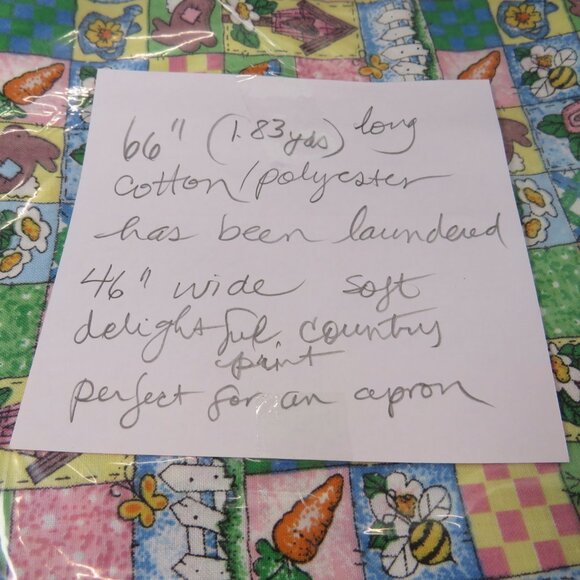 66" (1.83yds) long
cotton/polyester
has been laundered
46" wide soft
delightful country
print
perfect for an apron